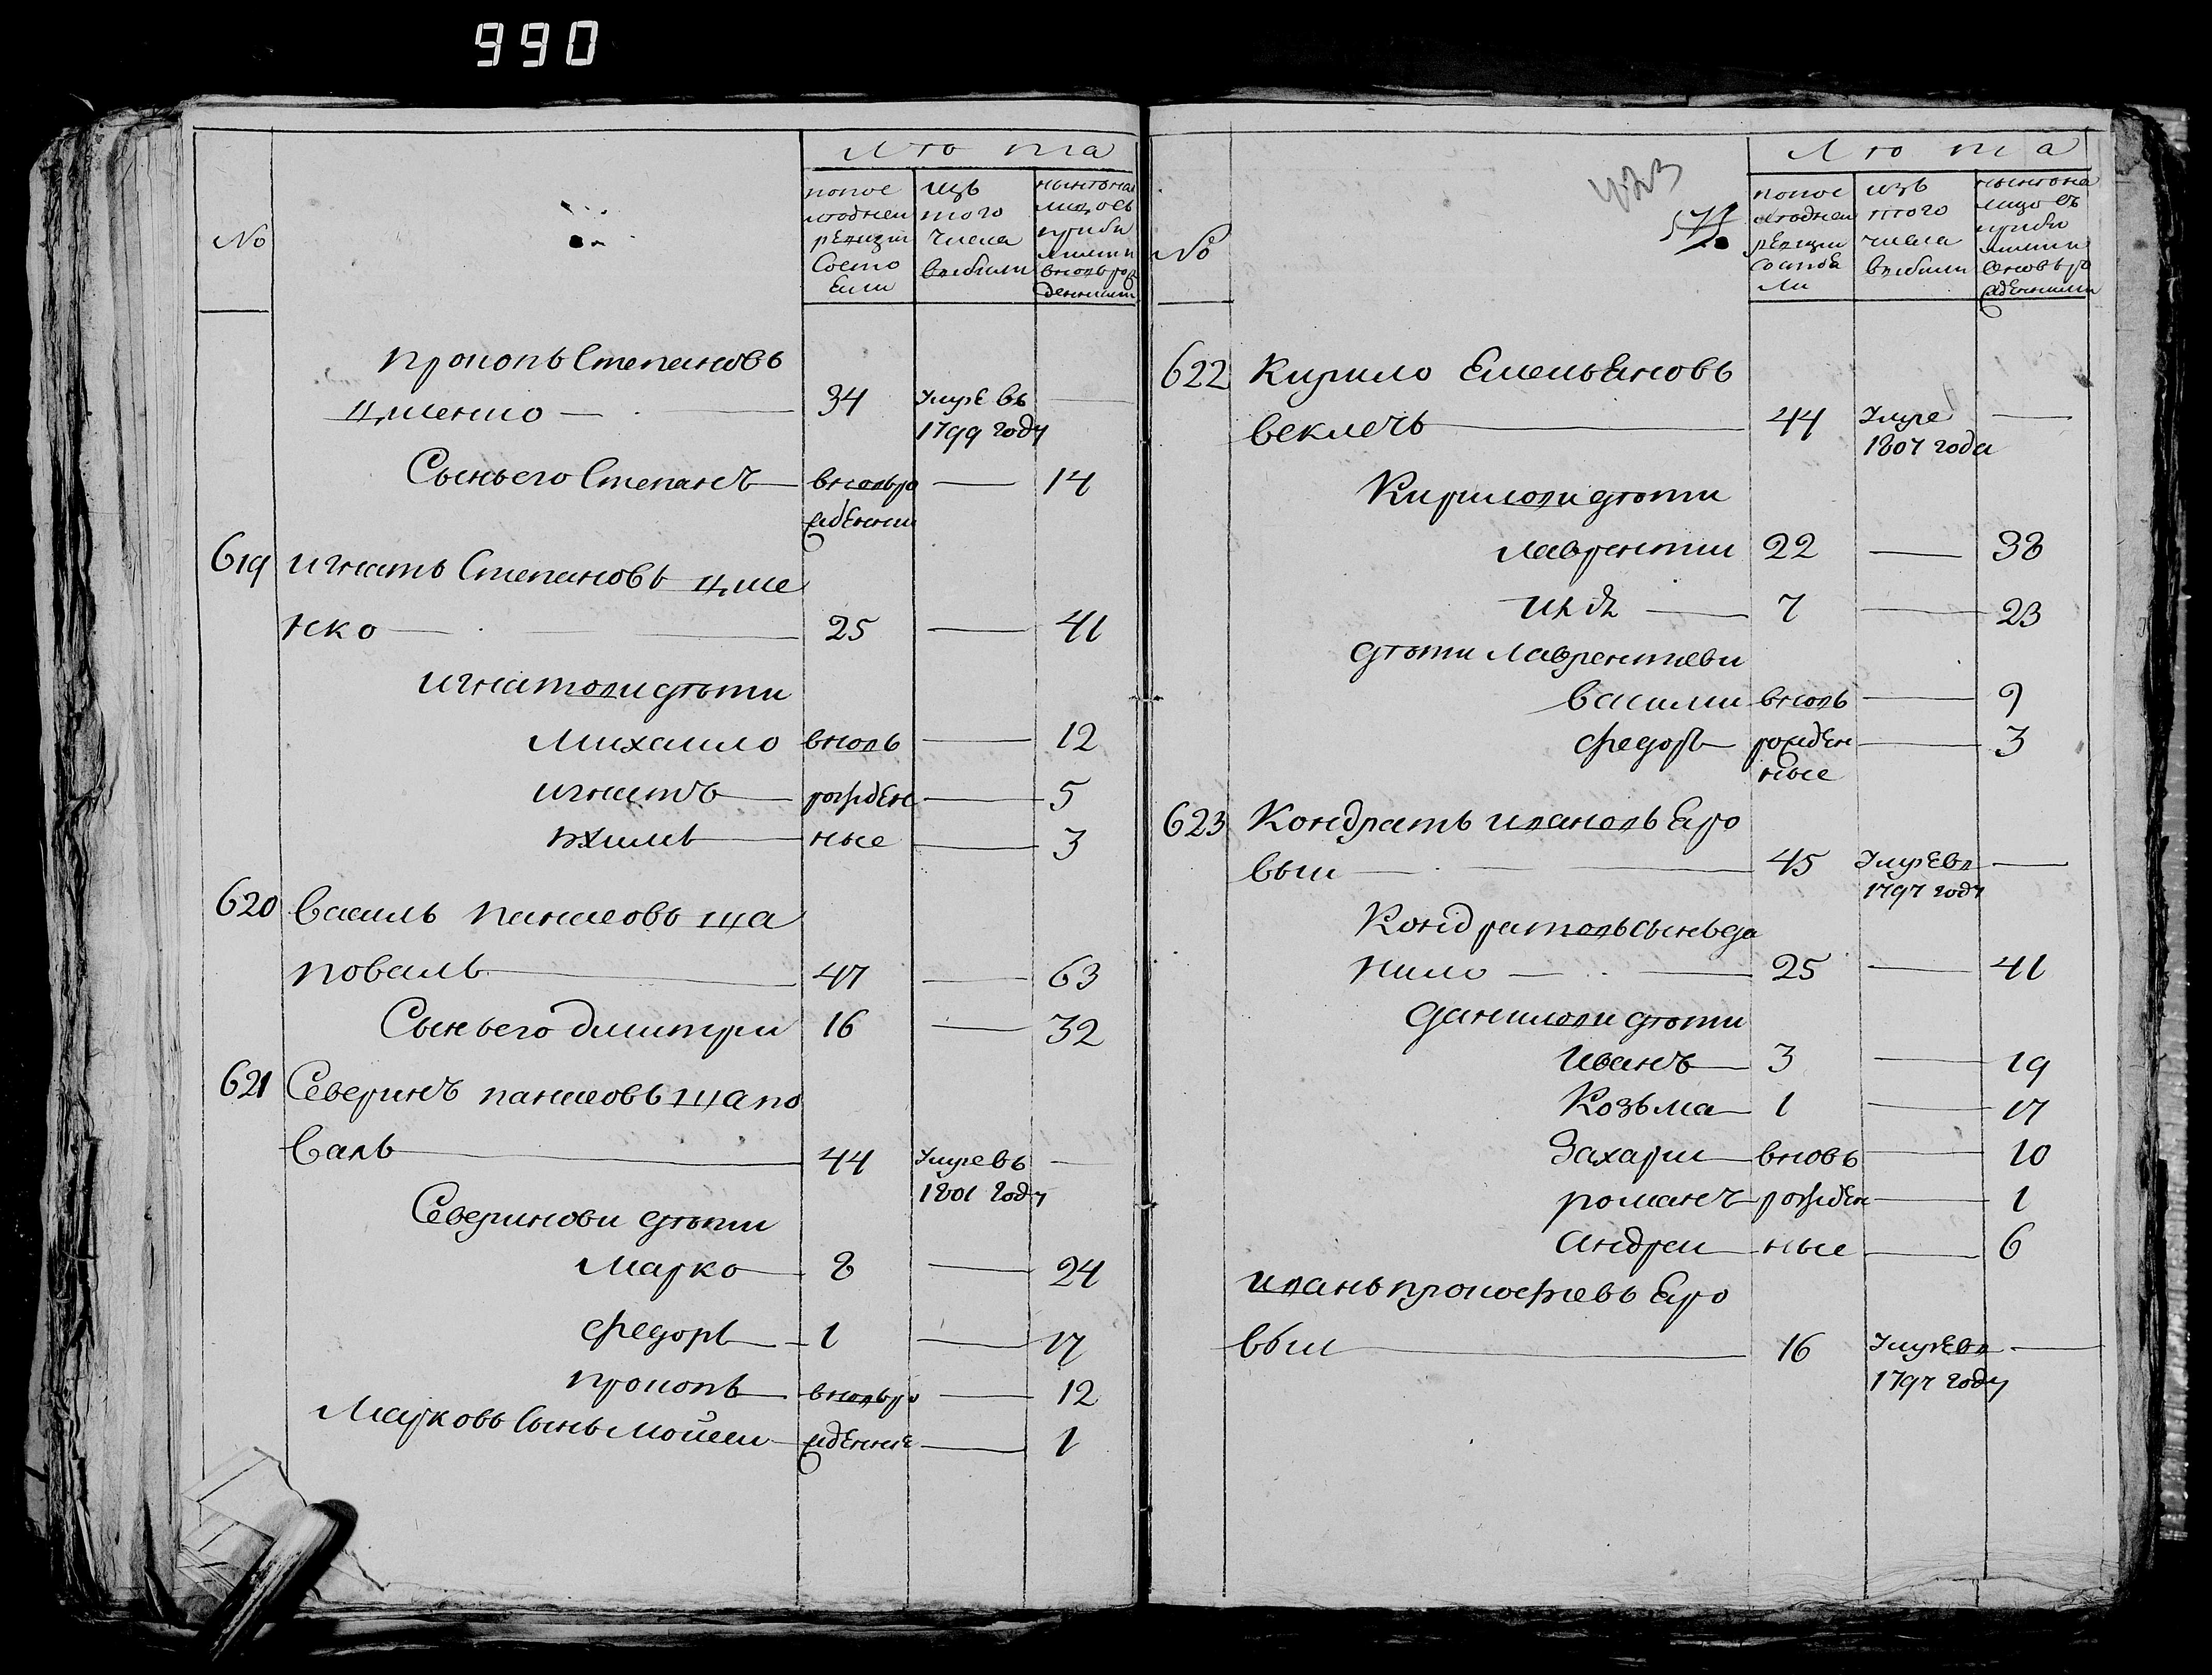 990
Лѣта
№
по пос
лѣдней
ревизіи
состо
яли
изъ
того
числа
выбыли
нынѣ на
лицо съ
прибы
лыми и
вновь рож
денными
Прокопъ Степановъ
34
Умре въ
1799 году
Сынъ его Степанъ вновь ро — 14
жденныи
619 Игнатъ Степановъ
нко — 25 — 41
Игнатовы дѣти
Михаило вновь — 12
Игнатъ рожден — 5
ные — 3
620 Василь Панасовъ Ша
поваль 47 — 63
Сынъ его Дмитрии 16 — 32
621 Северинъ Панасовъ Шапо
валъ 44 Умре въ —
1801 году
Северинови дѣти
Марко 8 — 24
Федоръ 1 — 17
Прокопъ вновь ро — 12
Марковъ сынъ Мойсеи жденные — 1
Лѣта
№
по пос
лѣдней
ревизіи
состоя
ли
изъ
того
числа
выбыли
нынѣ на
лицо съ
прибы
лыми и
вновь ро
жденными
622 Кирило Емельяновъ
Веклечъ 44 Умре —
1807 года
Кириловы дѣти
Лаврентии 22 — 38
7 — 23
Дѣти Лаврентиеви
Василии вновь — 9
Федоръ рожден — 3
ные
623 Кондратъ Ивановъ Яро
выи — 45 Умре въ —
1797 году
Кондратовъ сынъ Да
нило — 25 — 41
Даниловы дѣти
Иванъ 3 — 19
Козьма 1 — 17
Захарии вновь — 10
Романъ рожден — 1
Андреи ные — 6
Иванъ Прокофиевъ Яро
выи 16 Умре въ —
1797 году